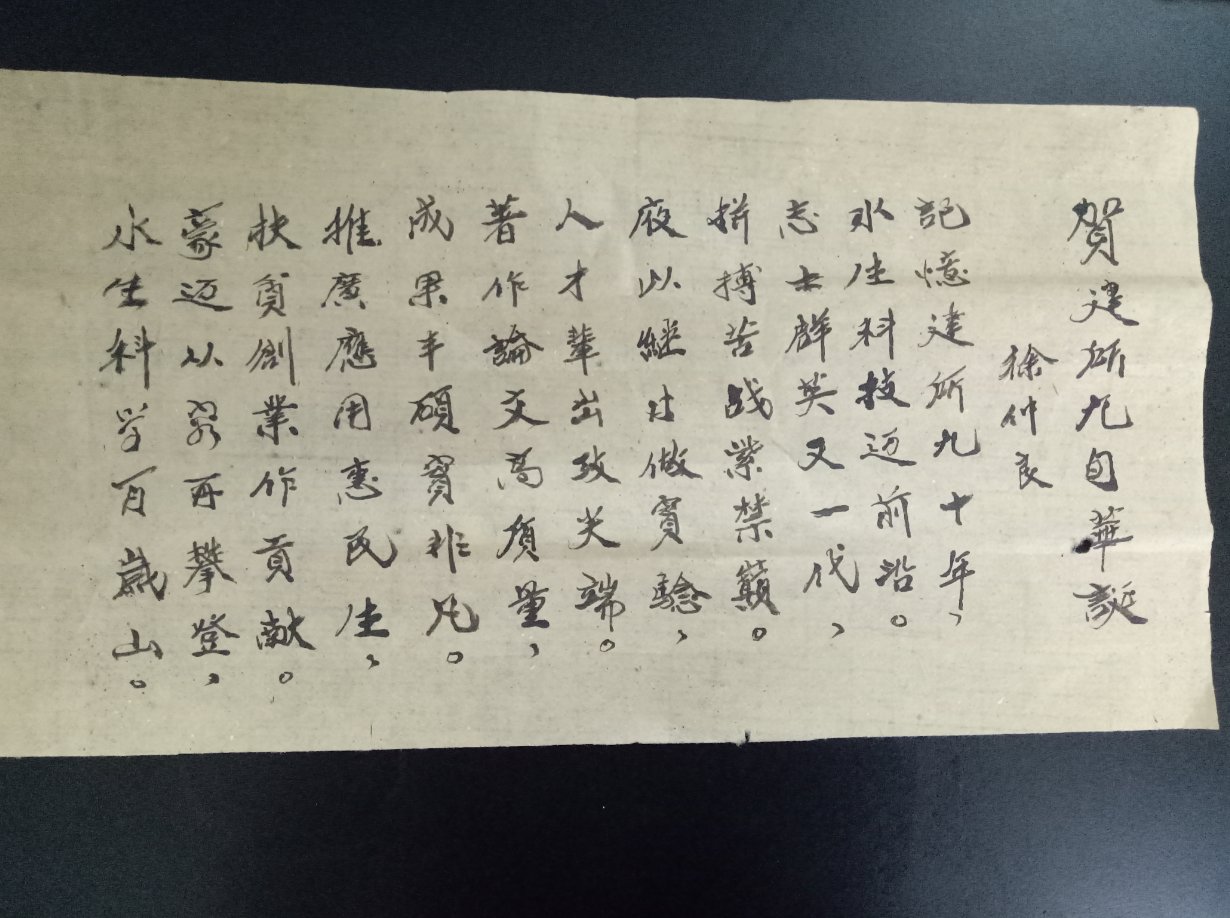 賀建所九旬華誕
徐仲良
記憶建所九十年、
水生科技迈前沿。
志士群英又一代，
拼搏苦战紫禁巔。
夜以継日做實驗，
人才輩出攻尖端。
著作論文高質量，
成果丰碩實非凡。
推廣應用惠民生，
扶貧創業作貢献。
豪迈从容再攀登，
水生科学百歲山。